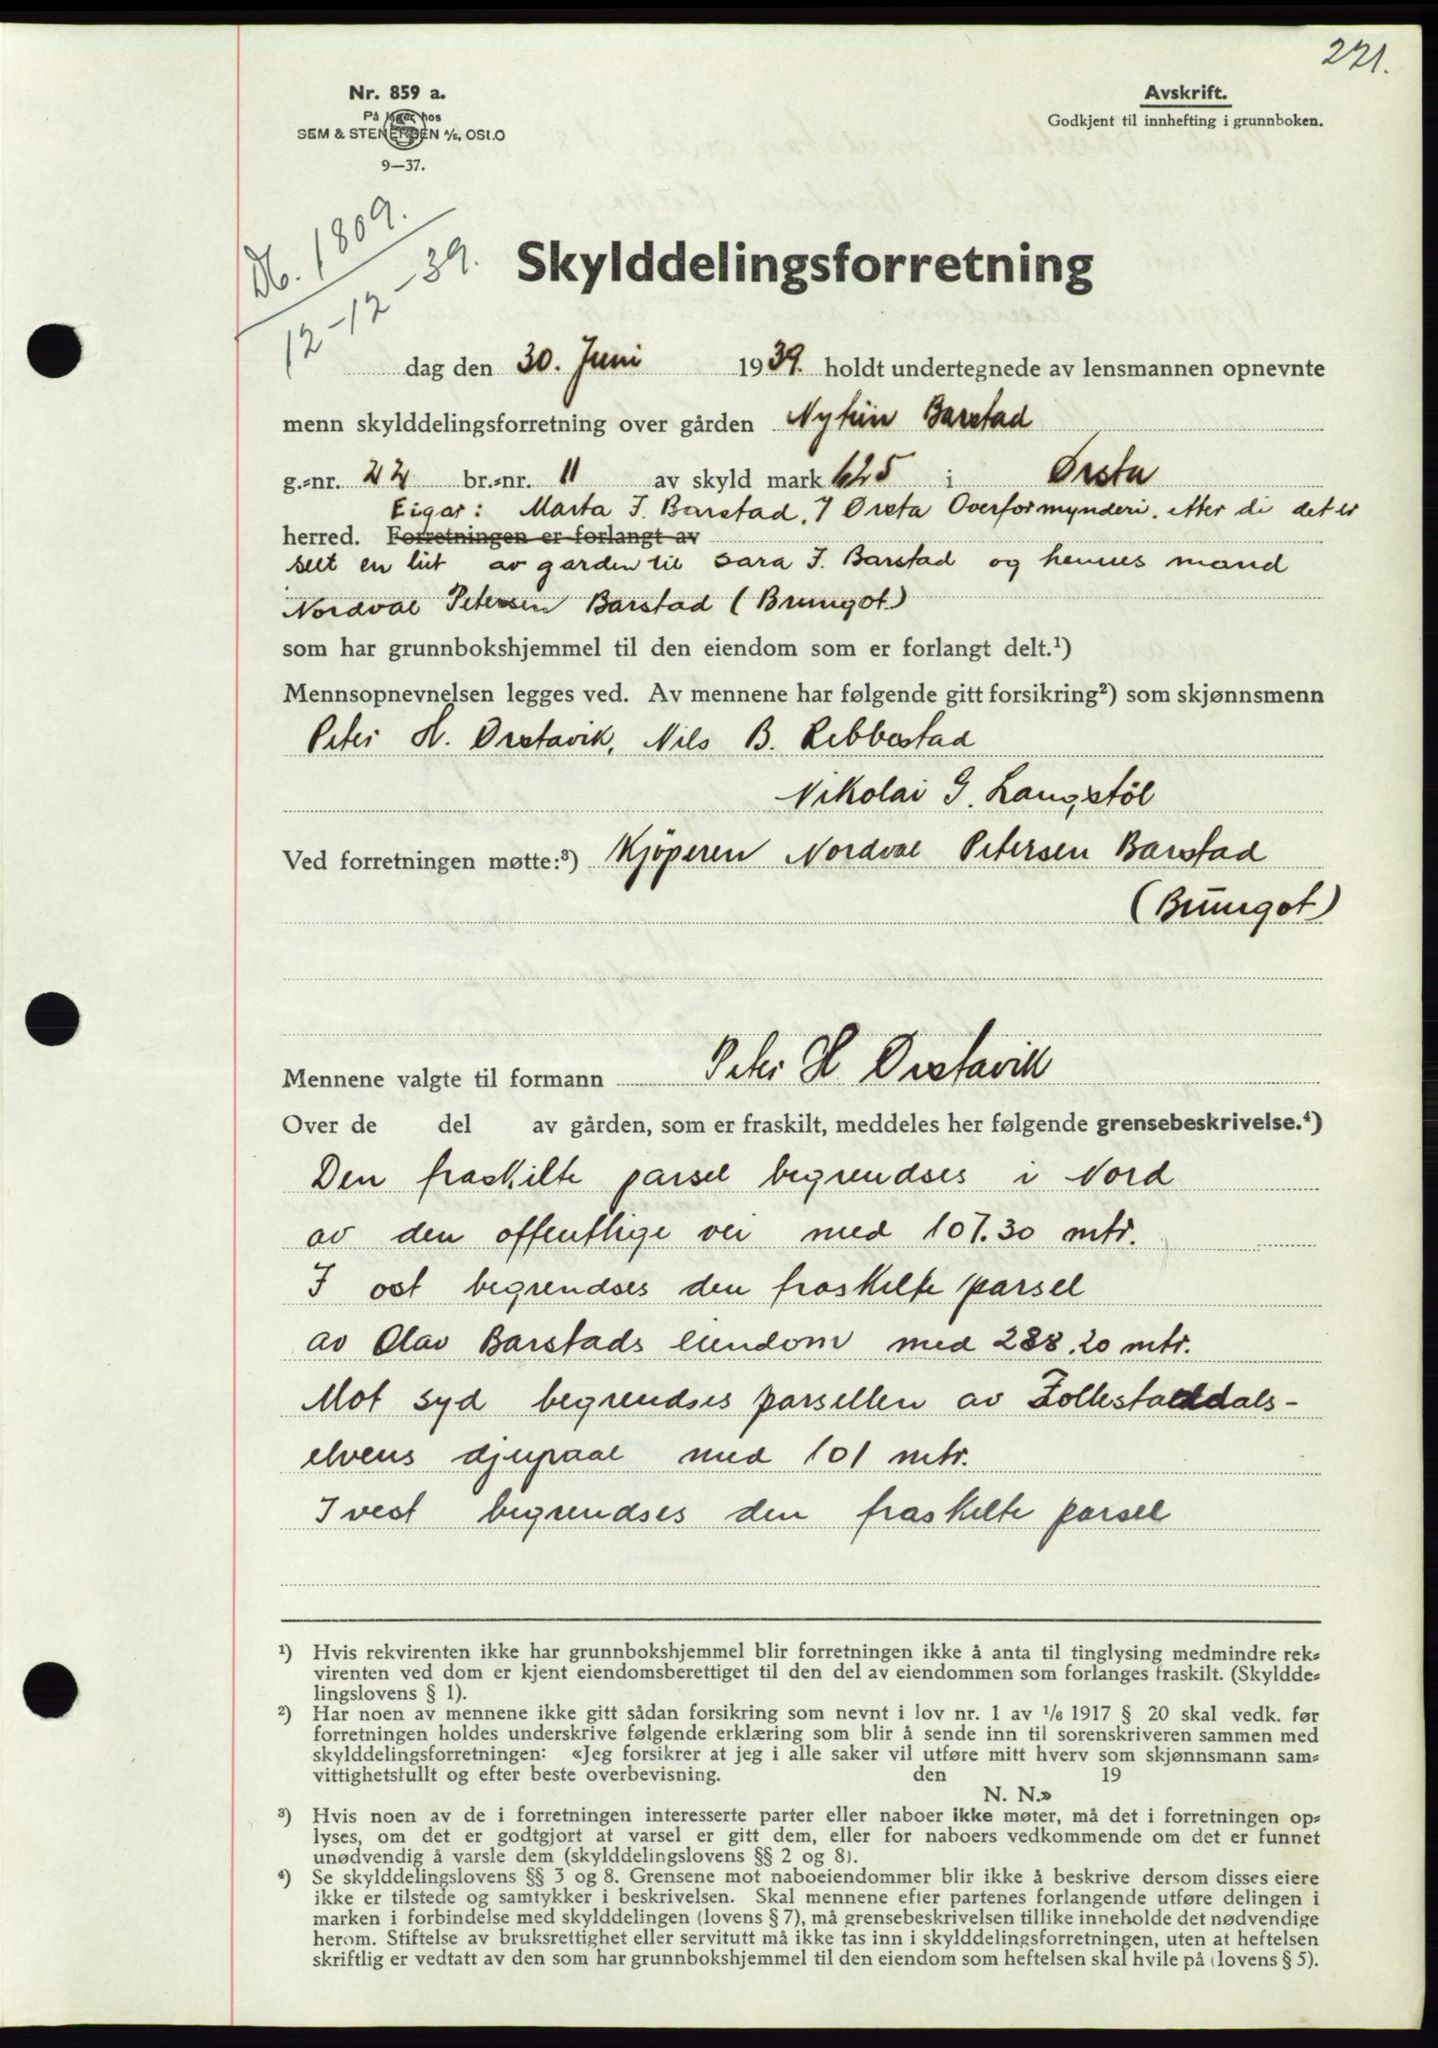 221.
Nr. 859 a.
På lager hos
SEM & STENERSEN A/S, OSLO
9—37.
Avskrift.
Godkjent til innhefting i grunnboken.
Db. 1809.
12-12-39.
Skylddelingsforretning
dag den 30. Juni 1939. holdt undertegnede av lensmannen opnevnte
menn skylddelingsforretning over gården Nytün Barstad
g.-nr. 22 br.-nr. 11 av skyld mark 625 i Ørsta
Eigar: Marta J. Barstad, / Ørsta Overformynderi. etter di det er
herred. Forretningen er forlangt av
selt en lut av garden til Sara J. Barstad og hennes mand
Nordval Petersen Barstad (Brungot)
som har grunnbokshjemmel til den eiendom som er forlangt delt.¹)
Mennsopnevnelsen legges ved. Av mennene har følgende gitt forsikring²) som skjønnsmenn
Peter H. Ørstavik, Nils B. Ribbestad
Nikolai G. Langstöl
Ved forretningen møtte:³) Kjöperen Nordval Petersen Barstad
(Brungot)
Mennene valgte til formann Peter H Ørstavik
Over de del av gården, som er fraskilt, meddeles her følgende grensebeskrivelse.⁴)
Den fraskilte parsel begrendses i Nord
av den offentlige vei med 107.30 mtr.
I ost begrendses den fraskilte parsel
av Olav Barstads eiendom med 288.20 mtr.
Mot syd begrendses parsellen av Follestaddals-
elvens djupaal med 101 mtr.
I vest begrendses den fraskilte parsel
¹) Hvis rekvirenten ikke har grunnbokshjemmel blir forretningen ikke å anta til tinglysing medmindre rek-
virenten ved dom er kjent eiendomsberettiget til den del av eiendommen som forlanges fraskilt. (Skyldde-
lingslovens § 1).
²) Har noen av mennene ikke gitt sådan forsikring som nevnt i lov nr. 1 av 1/6 1917 § 20 skal vedk. før
forretningen holdes underskrive følgende erklæring som blir å sende inn til sorenskriveren sammen med
skylddelingsforretningen: «Jeg forsikrer at jeg i alle saker vil utføre mitt hverv som skjønnsmann sam-
vittighetsfullt og efter beste overbevisning. den 19
N. N.»
³) Hvis noen av de i forretningen interesserte parter eller naboer ikke møter, må det i forretningen op-
lyses, om det er godtgjort at varsel er gitt dem, eller for naboers vedkommende om det er funnet
unødvendig å varsle dem (skylddelingslovens §§ 2 og 8).
⁴) Se skylddelingslovens §§ 3 og 8. Grensene mot naboeiendommer blir ikke å beskrive dersom disses eiere
ikke er tilstede og samtykker i beskrivelsen. Skal mennene efter partenes forlangende utføre delingen i
marken i forbindelse med skylddelingen (lovens § 7), må grensebeskrivelsen tillike inneholde det nødvendige
herom. Stiftelse av bruksrettighet eller servitutt må ikke tas inn i skylddelingsforretningen, uten at heftelsen
skriftlig er vedtatt av den som har grunnbokshjemmel til den eiendom som heftelsen skal hvile på (lovens § 5).